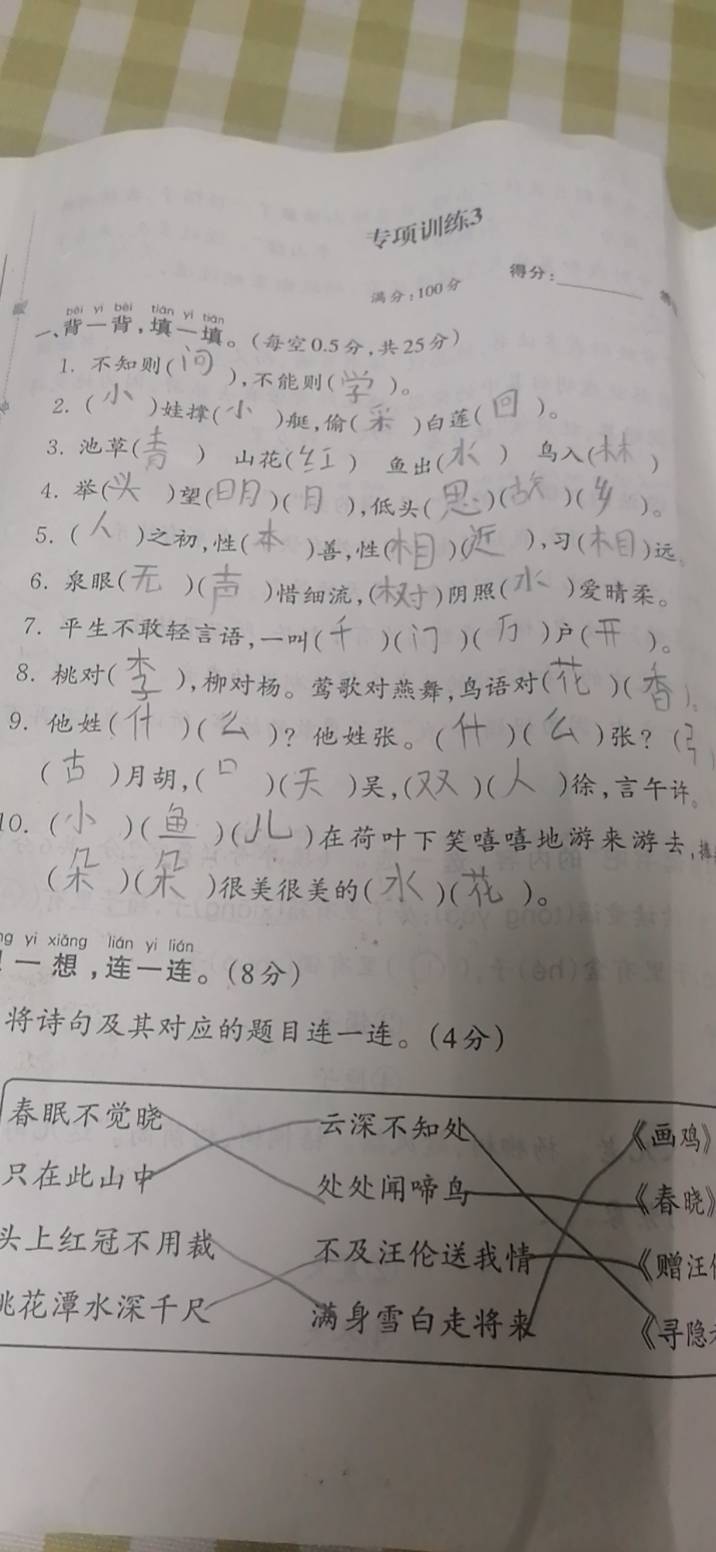 专项训练3
满分:100分 得分:
bèi yi bèi tián yi tián
一、背一背,填一填。(每空0.5分,共25分)
1. 不知则(问),不能则(学)。
2. (小)娃撑(小)艇,偷(采)白莲(回)。
3. 池草(青) 山花(红) 鱼出(水) 鸟入(林)
4. 举(头)望(明)(月),低头(思)(故)(乡)。
5. (人)之初,性(本)善,性(相)(近),习(相)远
6. 泉眼(无)(声)惜细流,(树)阴照(水)爱晴柔。
7. 平生不敢轻言语,一叫(千)(门)(万)户(开)。
8. 桃对(李),柳对杨。莺歌对燕舞,鸟语对(花)(香)。
9. 他姓(什)(么)?他姓张。(什)(么)张?(
(古)月胡,(口)(天)吴,(双)(人)徐,言午许。
10. (小)(鱼)(儿)在荷叶下笑嘻嘻地游来游去,
(朵)(朵)很美很美的(水)(花)。
yi xiǎng lián yi lián
一想,连一连。(8分)
将诗句及其对应的题目连一连。(4分)
春眠不觉晓 云深不知处 《画鸡》
只在此山中 处处闻啼鸟 《春晓》
头上红冠不用裁 不及汪伦送我情 《赠汪
桃花潭水深千尺 满身雪白走将来 《寻隐